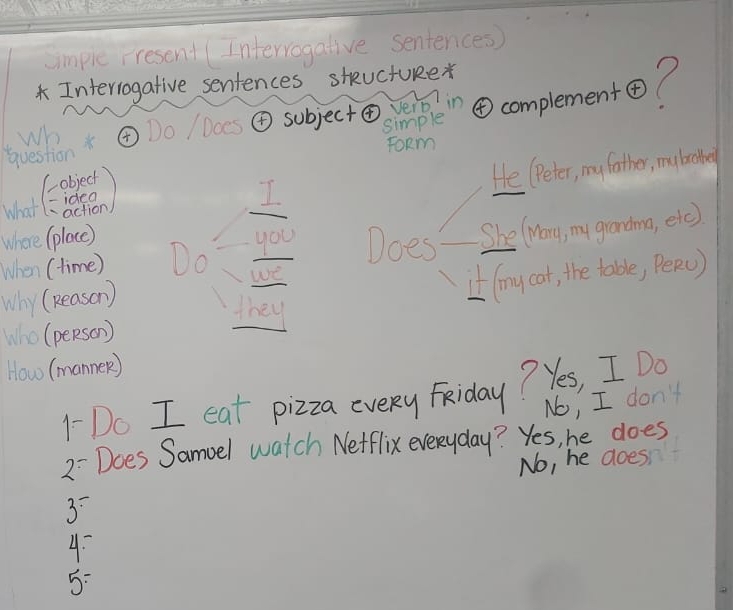 Simple Present (Interrogative Sentences)
* Interrogative sentences structure*
Wh question * ⊕ Do / Does ⊕ subject ⊕ verb in simple Form ⊕ complement ⊕ ?
What (- object
- idea
- action)
Where (place)
When (time)
Why (Reason)
Who (person)
How (manner)
Do
I
you
we
they
Does
He (Peter, my father, my brother
She (Mary, my grandma, etc).
it (my cat, the table, PERU)
1- Do I eat pizza every Friday ? Yes, I Do
No, I don't
2- Does Samuel watch Netflix everyday? Yes, he does
No, he doesn't
3-
4-
5-